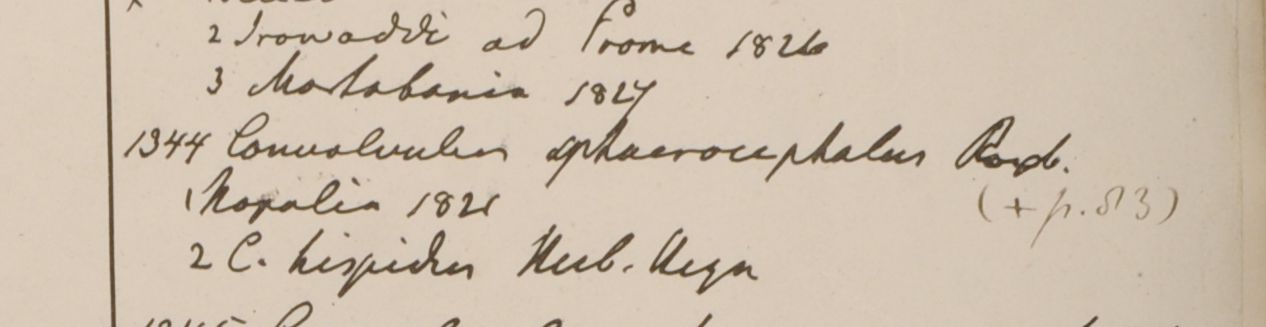 2 Irowaddi ad Prome 1826
3 Martabania 1827
1344 Convolvulus sphaerocephalus Roxb.
1 Napalia 1821
(+ p. 83)
2 C. hispidus Herb. Heyn